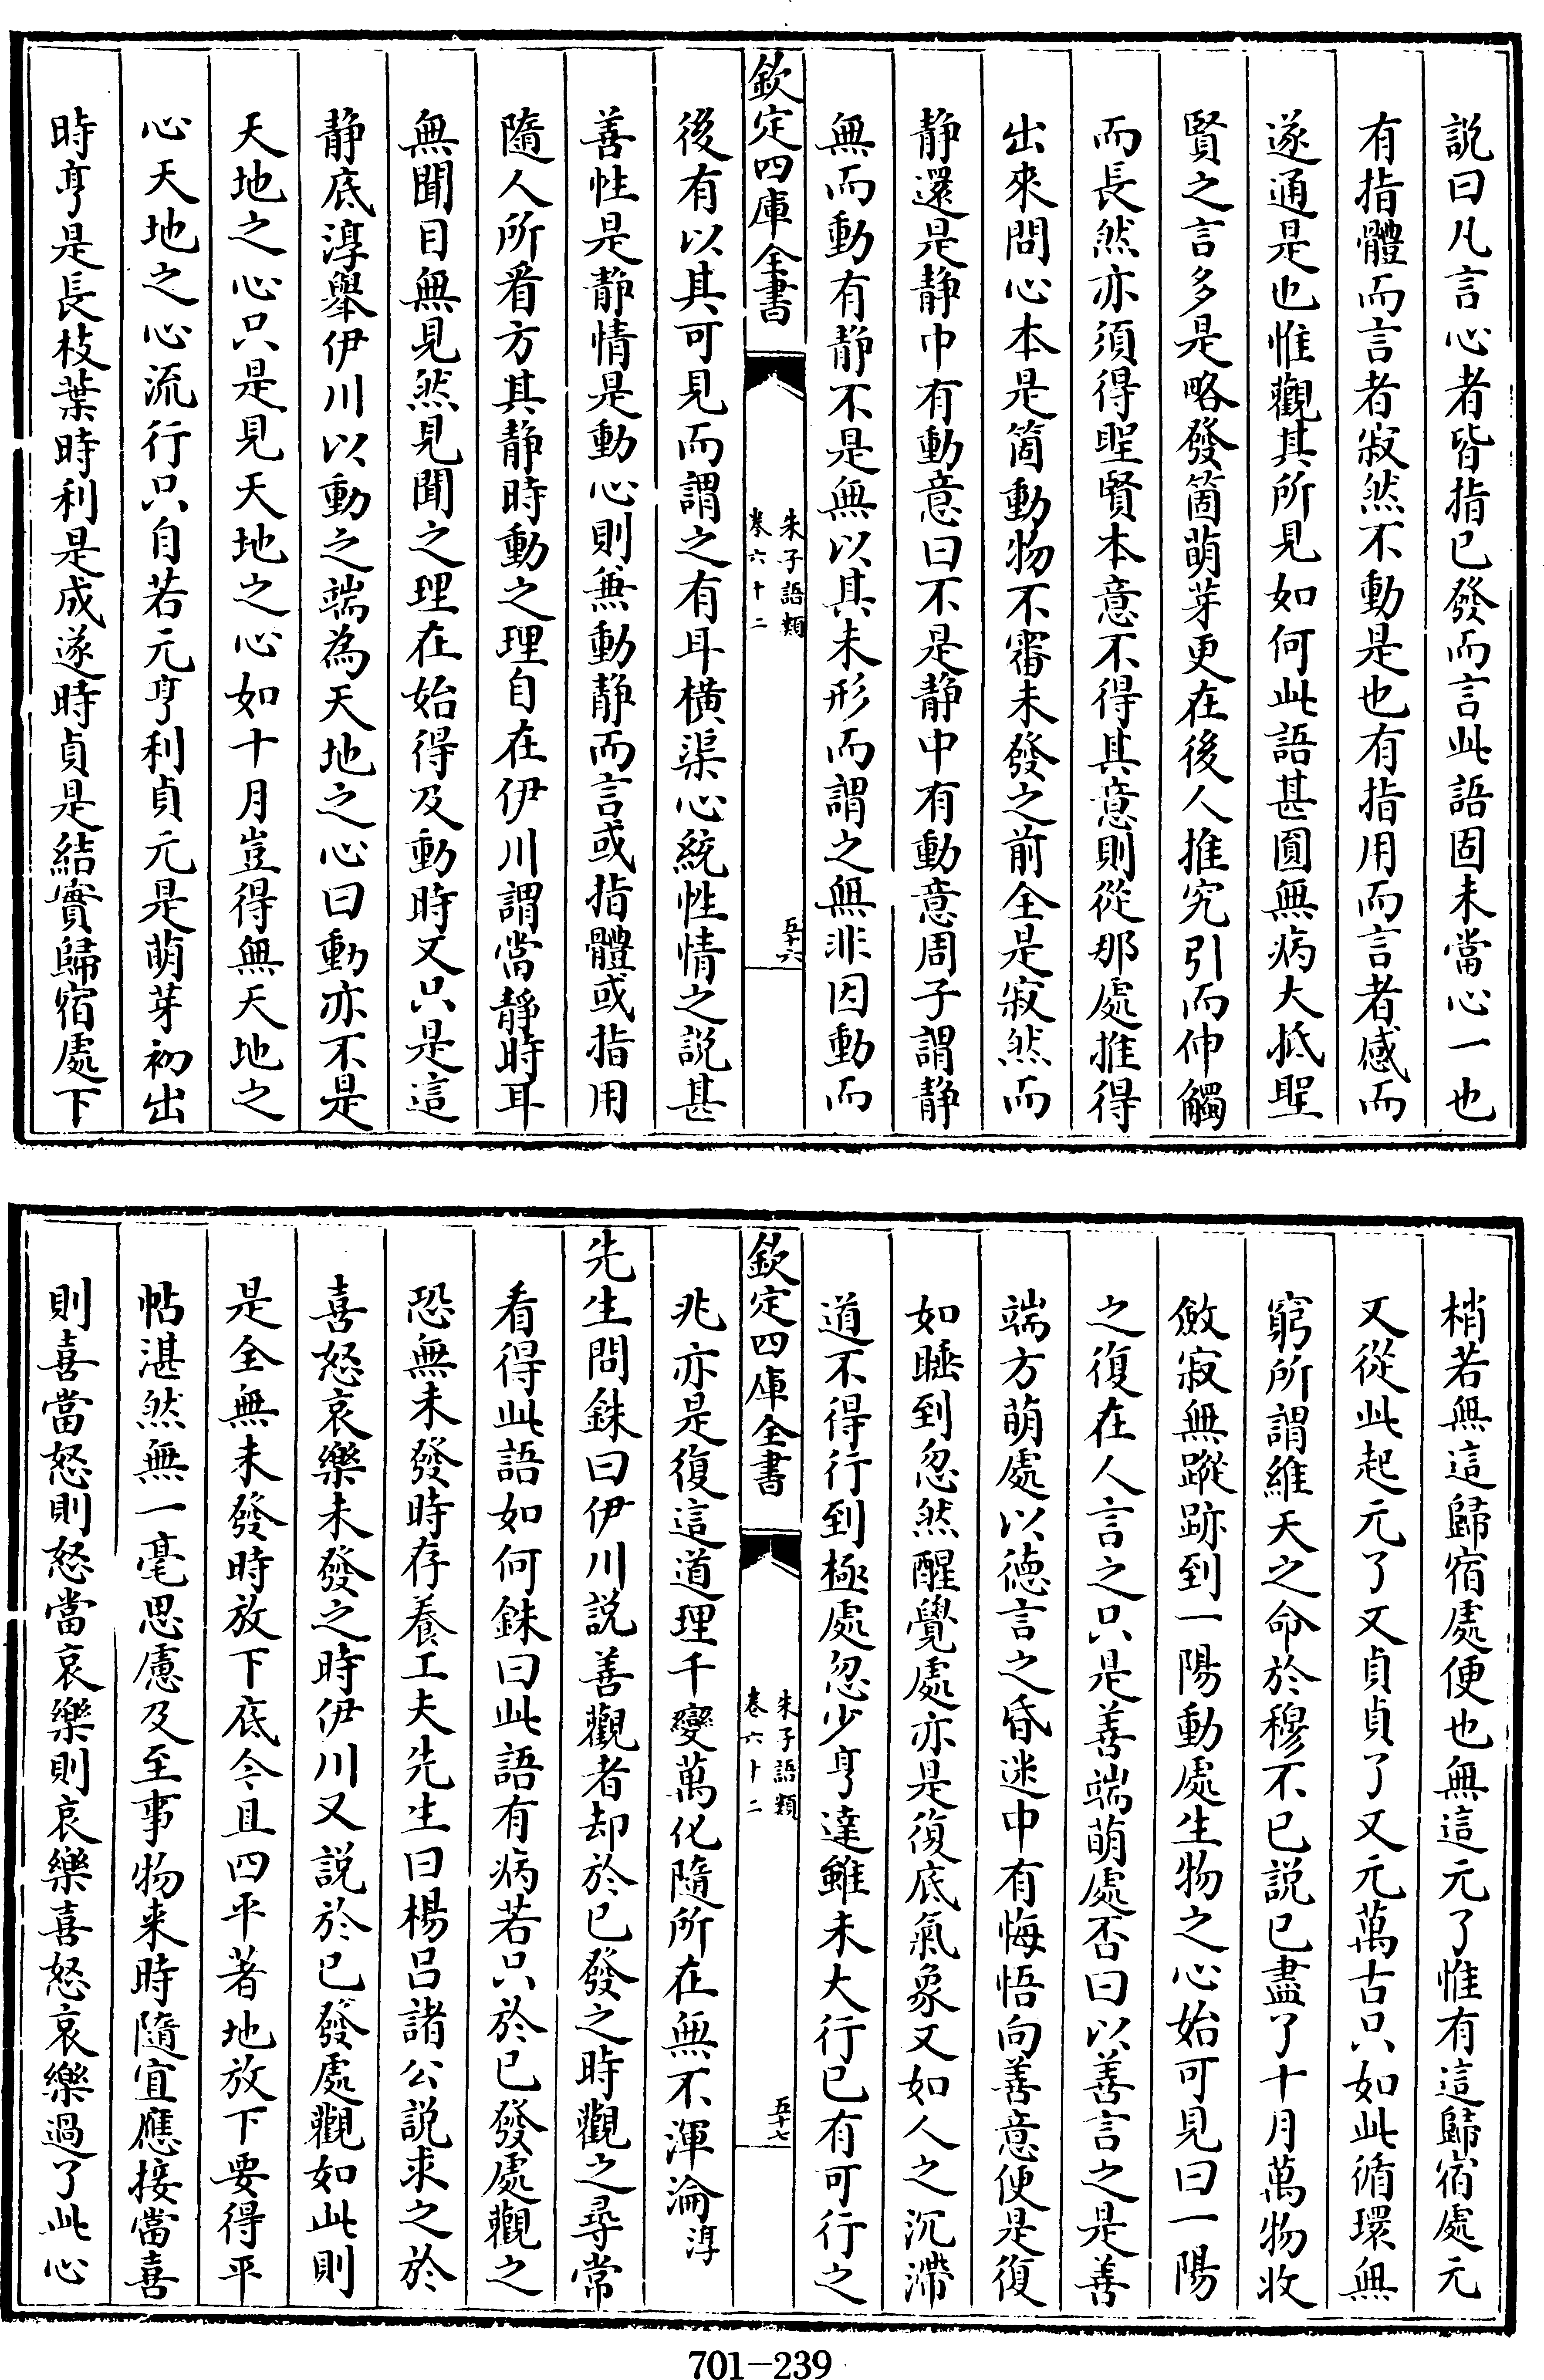 說曰凡言心者皆指已發而言此語固未當心一也
有指體而言者寂然不動是也有指用而言者感而
遂通是也惟觀其所見如何此語甚圓無病大抵聖
賢之言多是略發箇萌芽更在後人推究引而伸觸
而長然亦須得聖賢本意不得其意則從那處推得
出來問心本是箇動物不審未發之前全是寂然而
静還是静中有動意曰不是静中有動意周子謂静
無而動有静不是無以其未形而謂之無非因動而
欽定四庫全書
朱子語類
卷六十二
五十六
後有以其可見而謂之有耳横渠心統性情之説甚
善性是静情是動心則兼動静而言或指體或指用
隨人所看方其静時動之理自在伊川謂當静時耳
無聞目無見然見聞之理在始得及動時又只是這
静底淳舉伊川以動之端為天地之心曰動亦不是
天地之心只是見天地之心如十月豈得無天地之
心天地之心流行只自若元亨利貞元是萌芽初出
時亨是長枝葉時利是成遂時貞是結實歸宿處下
梢若無這歸宿處便也無這元了惟有這歸宿處元
又從此起元了又貞貞了又元萬古只如此循環無
窮所謂維天之命於穆不已説已盡了十月萬物收
斂寂無蹤跡到一陽動處生物之心始可見曰一陽
之復在人言之只是善端萌處否曰以善言之是善
端方萌處以德言之昏迷中有悔悟向善意便是復
如睡到忽然醒覺處亦是復底氣象又如人之沉滯
道不得行到極處忽少亨達雖未大行已有可行之
欽定四庫全書
朱子語類
卷六十二
五十七
兆亦是復這道理千變萬化隨所在無不渾淪淳
先生問銖曰伊川説善觀者却於已發之時觀之尋常
看得此語如何銖曰此語有病若只於已發處觀之
恐無未發時存養工夫先生曰楊吕諸公説求之於
喜怒哀樂未發之時伊川又説於已發處觀如此則
是全無未發時放下底今且四平著地放下要得平
帖湛然無一毫思慮及至事物来時隨宜應接當喜
則喜當怒則怒當哀樂則哀樂喜怒哀樂過了此心
701-239